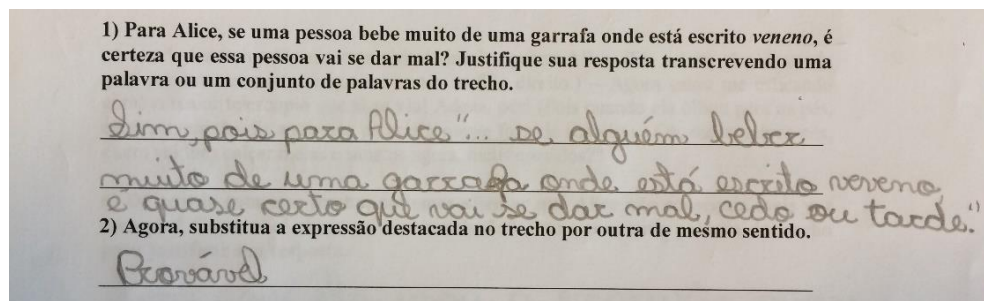 1) Para Alice, se uma pessoa bebe muito de uma garrafa onde está escrito veneno, é
certeza que essa pessoa vai se dar mal? Justifique sua resposta transcrevendo uma
palavra ou um conjunto de palavras do trecho.
Sim, pois para Alice "... se alguém beber
muito de uma garrafa onde está escrito veveno,
é quase certo que vai se dar mal, cedo ou tarde."
2) Agora, substitua a expressão destacada no trecho por outra de mesmo sentido.
Provável